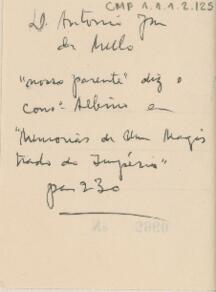 CMP 1.1.1.2.125
D. Antonio Jm
de Mello
"nosso parente" diz o
consº Albino em
"Memorias de Um Magis
trado do Império"
pag 230
No 5960